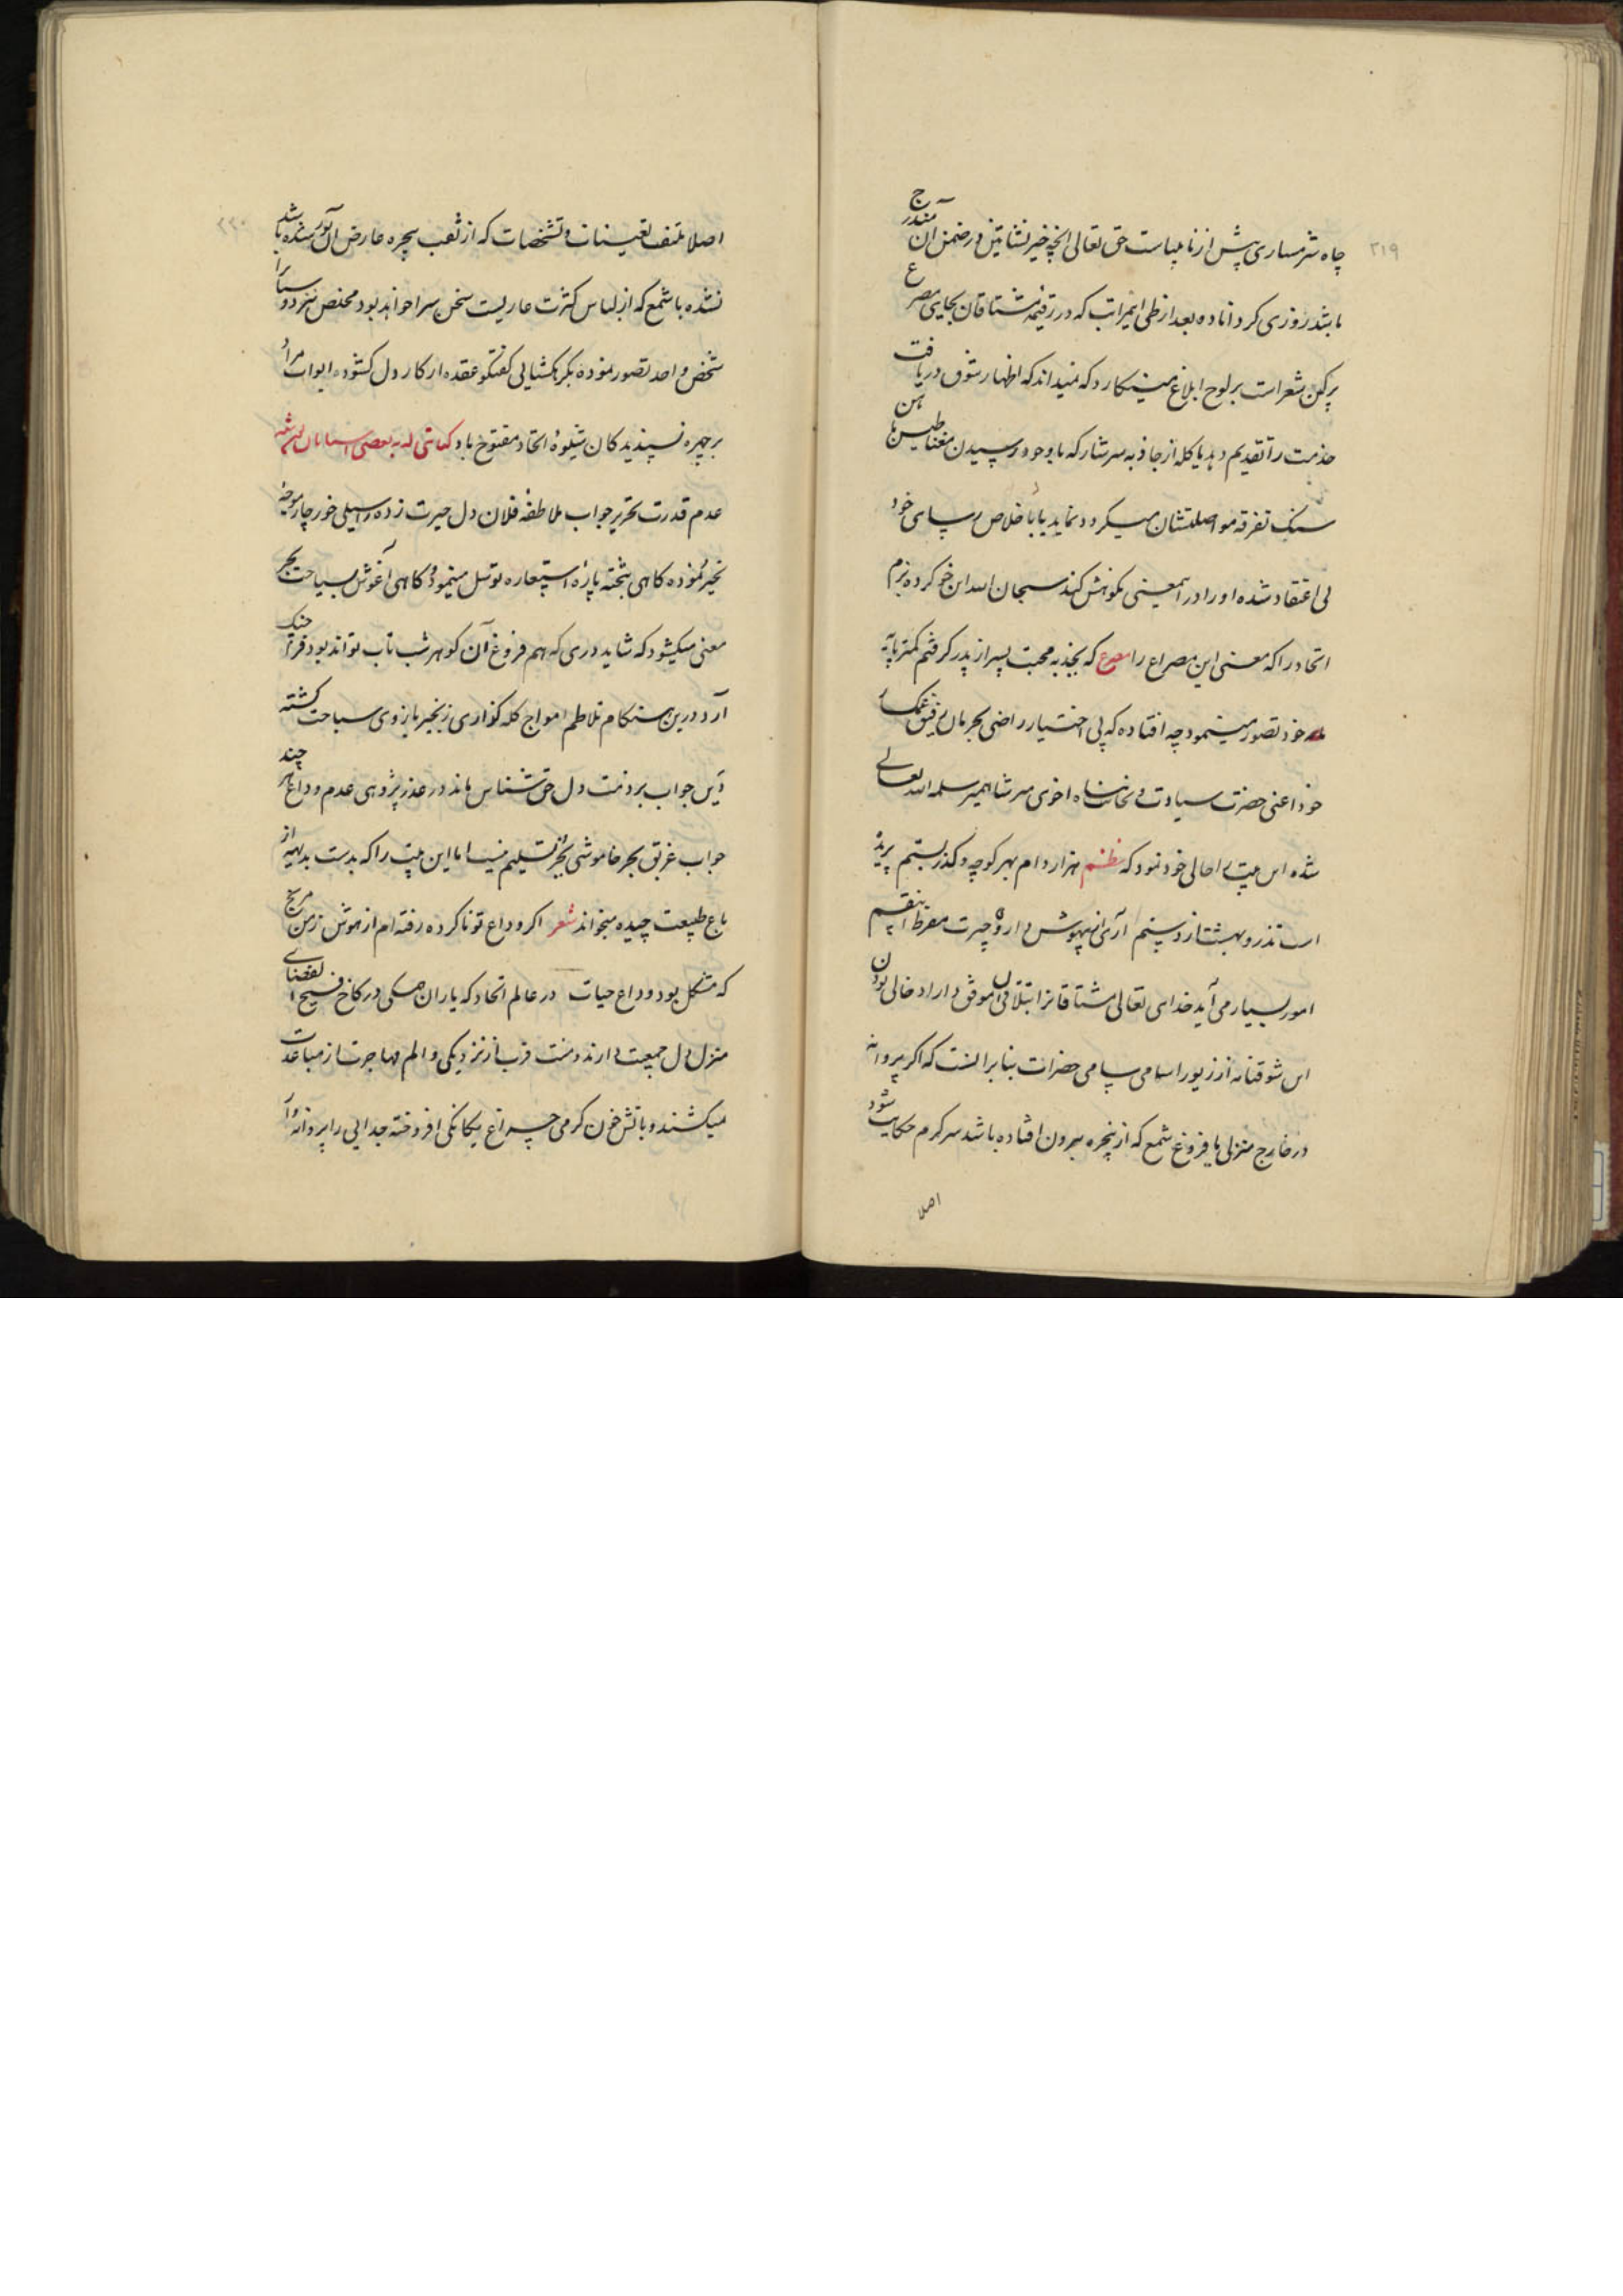 ۲۱۹
چاه شرمساری پیش از زنا بلباست حق تعالی انچه خیر نشاتین در ضمن آن مندرج
باشد روزی کرداناده بعد از طی ایمراتب که در رقیمه مشتاقان بجایی مصرع
پرکن شعر است بر لوح ابلاغ مینکارد که نمیداند که اظهار شوق دریافت
خدمت را تقدیم دهد یا کله از جاذبه سرشار که با وجود رسیدن مغناطیس باهن
سنک تفرقه مواصلتشان میکردد نماید یا با خلاص رسای خود
بی اعتقاد شده او را در اینمعنی نکوهش کند سبحان الله این خو کرده بزم
اتحاد را که معنی این مصراع را مصرع که بجذبه محبت پسر از پدر کرفتم کمتر پایه
خود تصور مینمود چه افتاده که بی اختیار راضی بحرمان رفیق غمکسار
خود اعنی حضرت سیادت و نجابت پناه اخوی میر شاهمیر سلمه الله تعالی
شده این بیت را حالی خود نمود که نظم هزار دام بهر کوچه و کذر بستم پرید
است تذرو بهشتا ز دستم آری از بیهوش داروی حیرت مفرط اینقسم
امور بسیار می آید خدای تعالی مشتاقانرا بتلاقی آن موفق داراد خالی بودن
این شوقنامه از زیور اسامی سامی حضرات بنابر آنست که اگر پروانه
در خارج منزلی با فروغ شمع که از پنجره بیرون افتاده باشد سرکرم حکایت شود
اصلا
۲۲۰
اصلا ملتفت تعینات و تشخصات که از ثقب پنجره عارض آن نور شده باشد
نشده با شمع که از لباس کثرت عاریست سخن سرا خواهد بود مخلص نیز دوستانرا
شخص واحد تصور نموده بکره کشایی کفتکو عقده از کار دل کشوده ابواب مراد
بر چهره نسپندید کان شیوه اتحاد مفتوح باد کتابتی که به بعضی اشنایان نوشته
عدم قدرت تحریر جواب ملاطفه فلان دل حیرت زده را سیلی خور چار موجه
تحیر نموده کاهی بتخته پاره استعاره توسل مینمود و کاهی آغوش بسیاحت بحر
معنی میکشود که شاید دری که هم فروغ آن کوهر شب تاب تواند بود فراچنک
آرد درین هنکام تلاطم امواج کله کذاری زنجیر بازوی سباحت کشته
دین جواب بر ذمت دل حق شناس ماند در عذر پژوهی عدم وداع هر چند
جواب غریق بحر خاموشی بجز تسلیم نیست اما این بیت را که بدست بدیهه از
باغ طبیعت چیده میخواند شعر اکر وداع تو نا کرده رفته ام از هوش ز من مرنج
که مشکل بود وداع حیات در عالم اتحاد که یاران همکی در کاخ فسیح الفضای
منزل دل جمعیت دارند و منت قرب از نزدیکی و الم مهاجرت از مباعدت
میکشند و باتش خون کرمی چراغ یکانکی افروخته جدایی را پروانه وار